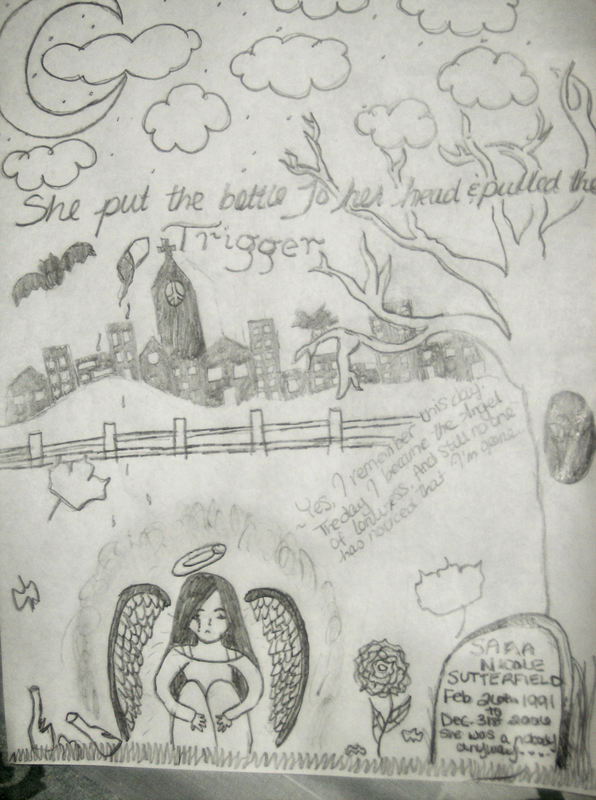 She put the bottle To her head & pulled the
Trigger
~Yes, I remember this day.
The day I became the Angel
Of Lonliness. And still no one
has noticed that I'm gone
SARA
NICOLE
SUTTERFIELD
Feb 26th 1991
to
Dec. 3rd 2006
She was a nobody
anyway....